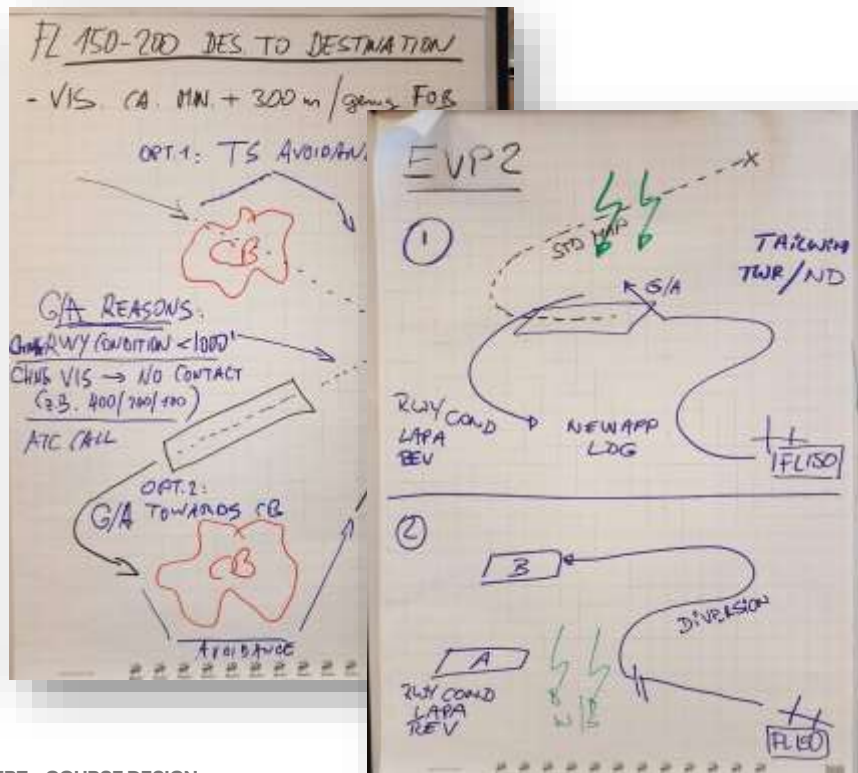 FL 150-200 DES. TO DESTINATION
- VIS. CA. MN. + 300 m / genug FOB
OPT.1: TS AVOIDAN
CB
G/A REASONS:
RWY CONDITION <1000'
CHNG VIS → NO CONTACT
(z.B. 400/200/100)
ATC CALL
OPT.2:
G/A TOWARDS CB
CB
AVOIDANCE
EVP2
1
STD MAP
TAILWIND
TWR/ND
G/A
RWY COND
LAPA
REV
NEW APP
LDG
FL150
2
B
DIVERSION
A
RWY COND
LAPA
REV
FL150
COURSE DESIGN